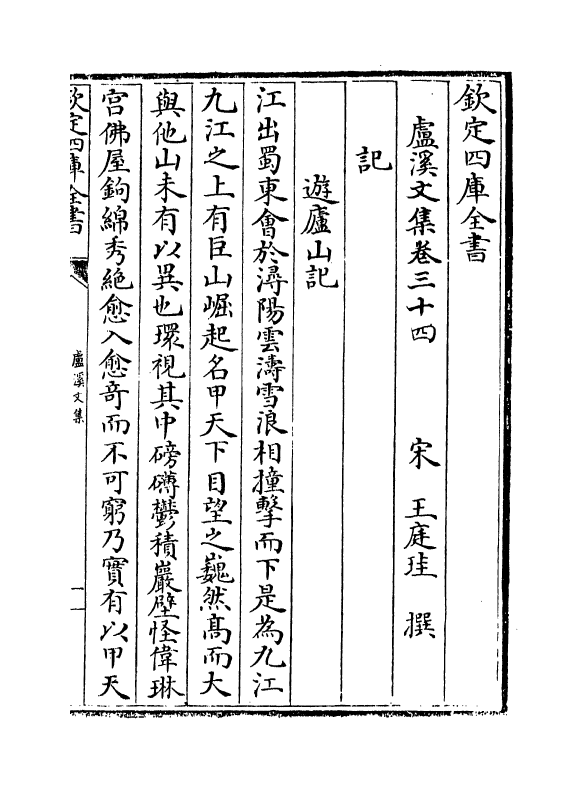 欽定四庫全書
盧溪文集卷三十四 宋 王庭珪 撰
記
遊廬山記
江出蜀東會於潯陽雲濤雪浪相撞擊而下是為九江
九江之上有巨山崛起名甲天下目望之巍然髙而大
與他山未有以異也環視其中磅礴鬱積巖壁怪偉琳
宫佛屋鉤綿秀絶愈入愈竒而不可窮乃實有以甲天
欽定四庫全書
盧溪文集
一